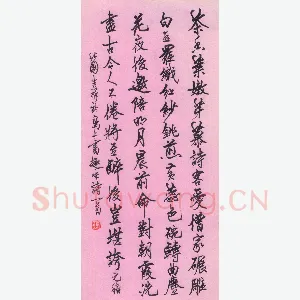 茶香葉嫩芽慕詩客愛僧家碾雕
白玉羅織紅紗銚煎黃蕊色碗轉曲塵
花夜後邀陪明月晨前命對朝霞洗
盡古今人不倦將至醉後豈堪誇 元稹
Shufawang.CN